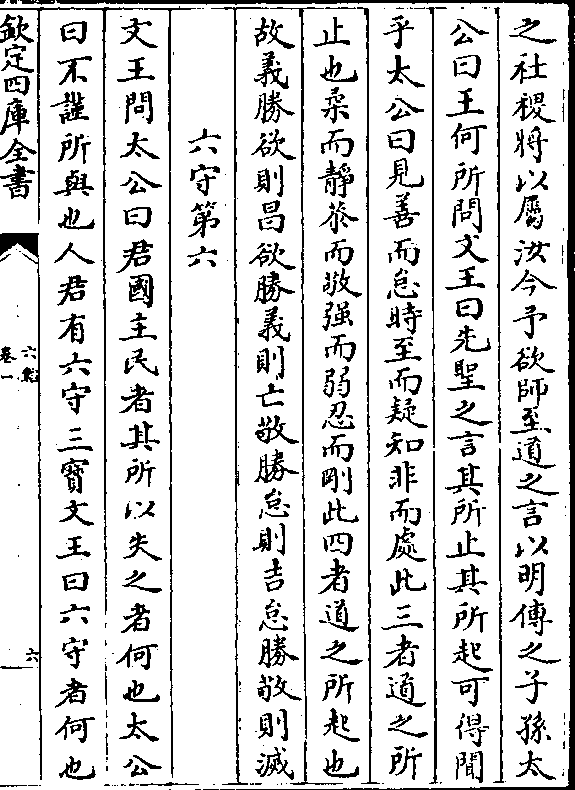 之社稷將以屬汝今予欲師至道之言以明傳之子孫太
公曰王何所問文王曰先聖之言其所止其所起可得聞
乎太公曰見善而怠時至而疑知非而處此三者道之所
止也柔而靜恭而敬强而弱忍而剛此四者道之所起也
故義勝欲則昌欲勝義則亡敬勝怠則吉怠勝敬則滅
六守第六
文王問太公曰君國主民者其所以失之者何也太公
曰不謹所與也人君有六守三寳文王曰六守者何也
欽定四庫全書
六韜
卷一
六